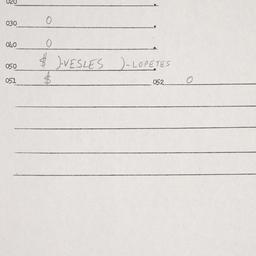 020
030 0
040 0
050 $ )-VESLES )-LOPETES
051 $ 052 0